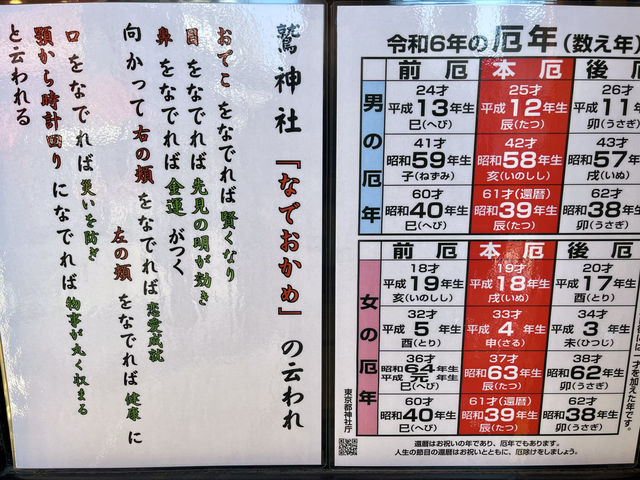 鷲神社 「なでおかめ」の云われ
おでこをなでれば賢くなり
目をなでれば先見の明が効き
鼻をなでれば金運がつく
向かって右の頬をなでれば恋愛成就
左の頬をなでれば健康に
口をなでれば災いを防ぎ
顎から時計回りになでれば物事が丸く収まる
と云われる
令和6年の厄年(数え年)
男の厄年
前厄 本厄 後厄
24才 25才 26才
平成13年生 平成12年生 平成11年
巳(へび) 辰(たつ) 卯(うさぎ)
41才 42才 43才
昭和59年生 昭和58年生 昭和57年
子(ねずみ) 亥(いのしし) 戌(いぬ)
60才 61才(還暦) 62才
昭和40年生 昭和39年生 昭和38年生
巳(へび) 辰(たつ) 卯(うさぎ)
女の厄年
前厄 本厄 後厄
18才 19才 20才
平成19年生 平成18年生 平成17年
亥(いのしし) 戌(いぬ) 酉(とり)
32才 33才 34才
平成5年生 平成4年生 平成3年生
酉(とり) 申(さる) 未(ひつじ)
36才 37才 38才
昭和64年生 平成元年生 昭和63年生 昭和62年生
巳(へび) 辰(たつ) 卯(うさぎ)
60才 61才(還暦) 62才
昭和40年生 昭和39年生 昭和38年生
巳(へび) 辰(たつ) 卯(うさぎ)
才を加えた年です。
東京都神社庁
還暦はお祝いの年であり、厄年でもあります。
人生の節目の還暦はお祝いとともに、厄除けをしましょう。